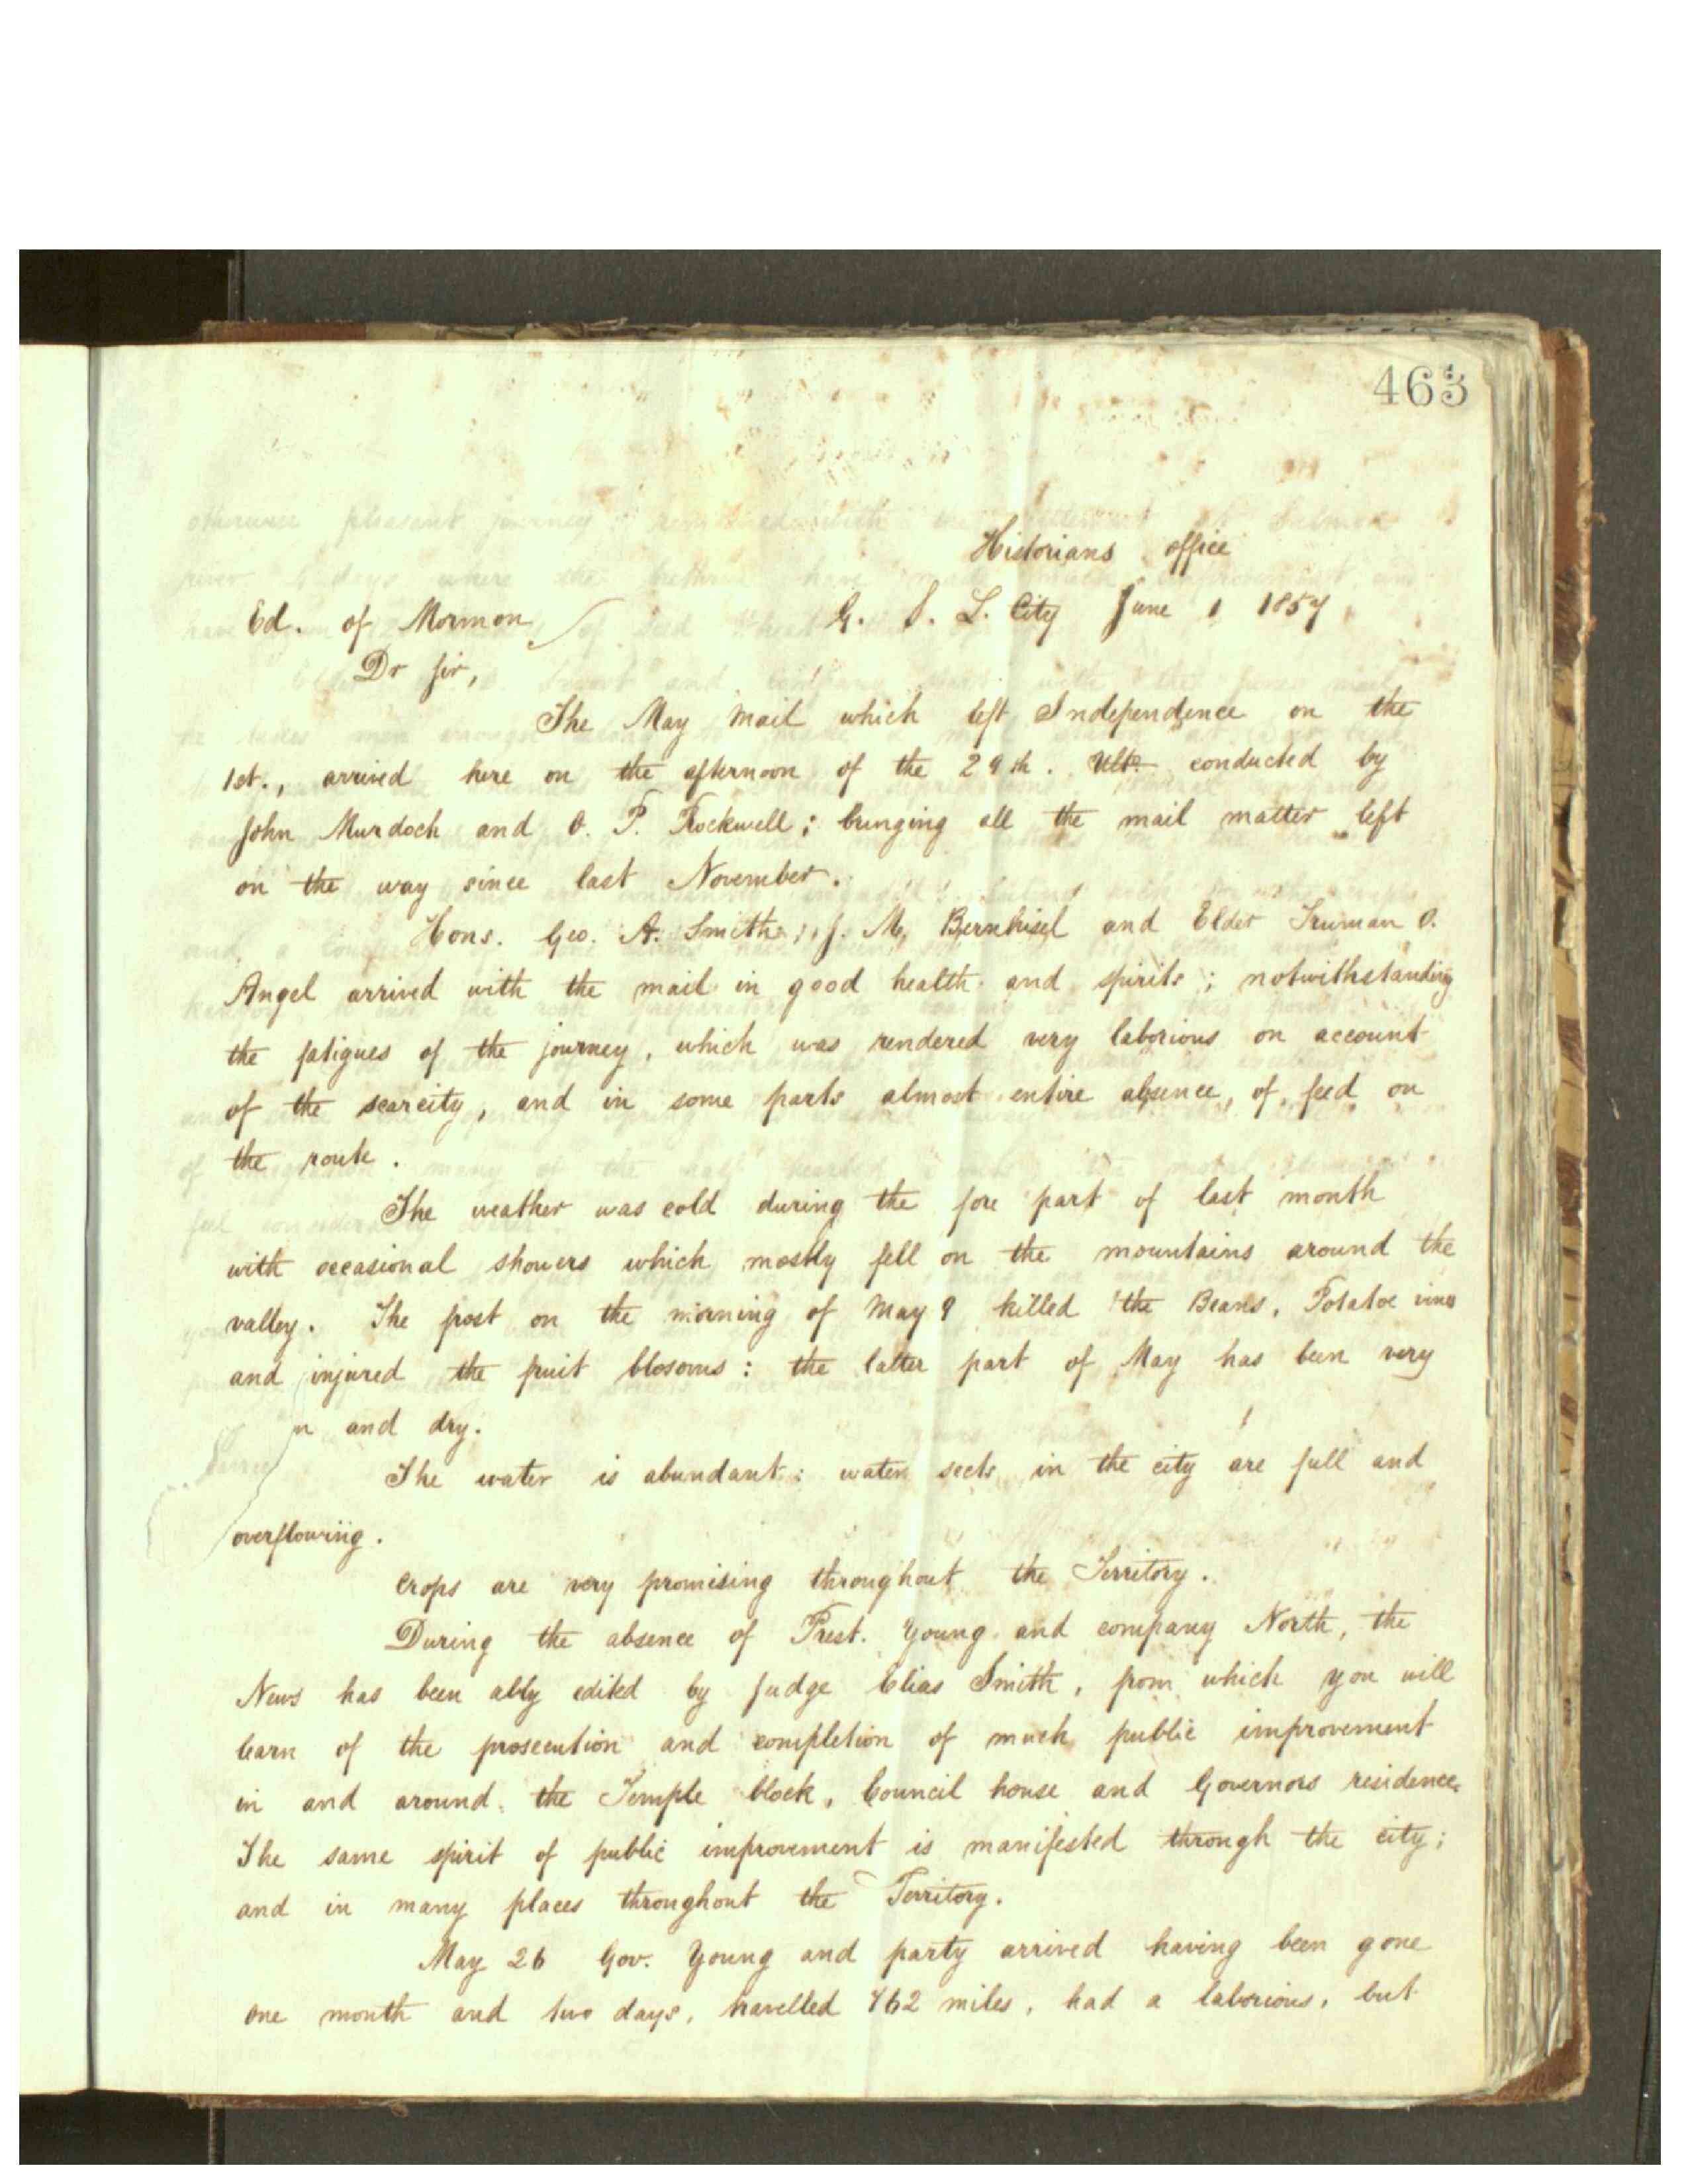 463
Historians office
Ed. of Mormon G. S. L. City June 1 1857
Dr Sir,
The May Mail which left Independence on the
1st., arrived here on the afternoon of the 29th. Ult. conducted by
John Murdoch and O. P. Rockwell; bringing all the mail matter left
on the way since last November.
Hons. Geo. A. Smith; J. M. Bernhisel and Elder Truman O.
Angel arrived with the mail in good health and spirits; notwithstanding
the fatigues of the journey, which was rendered very laborious on account
of the scarcity, and in some parts almost entire absence, of feed on
the route.
The weather was cold during the fore part of last month
with occasional showers which mostly fell on the mountains around the
valley. The frost on the morning of May 9 killed the Beans, Potatoe vines
and injured the fruit blosoms: the latter part of May has been very
and dry.
The water is abundant: water sects in the city are full and
overflowing.
Crops are very promising throughout the Territory.
During the absence of Prest. Young and company North, the
News has been ably edited by Judge Elias Smith, from which you will
learn of the prosecution and completion of much public improvement
in and around the Temple block, Council house and Governors residence.
The same spirit of public improvement is manifested through the city;
and in many places throughout the Territory.
May 26 Gov. Young and party arrived having been gone
one month and two days, travelled 762 miles, had a laborious, but